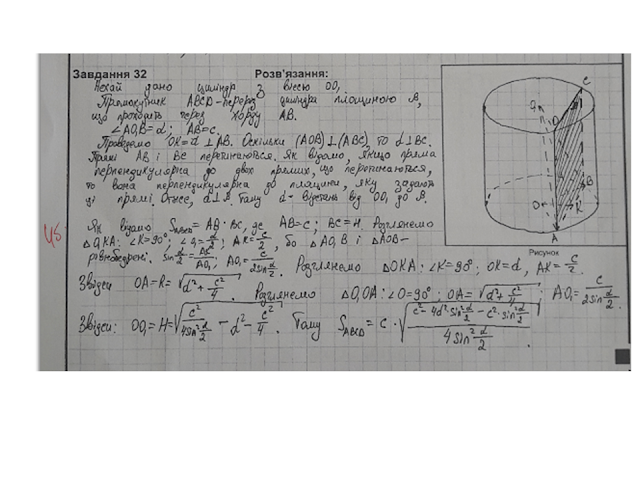 Завдання 32 Розв'язання:
Нехай дано циліндр з віссю OO₁
Прямокутник ABCD - переріз циліндра площиною β,
що проходить через хорду AB.
∠AO₁B = α; AB = c.
Проведемо OK = d ⊥ AB. Оскільки (AOB) ⊥ (ABC), то d ⊥ BC.
Прямі AB і BC перетинаються. Як відомо, якщо пряма
перпендикулярна до двох прямих, що перетинаються,
то вона перпендикулярна до площини, яку задають
ці прямі. Отже, d ⊥ β. Тому d - відстань від OO₁ до β.
Як відомо S_ABCD = AB · BC, де AB = c; BC = H. Розглянемо
△O₁KA: ∠K = 90°; ∠O₁ = α/2; AK = c/2, бо △AO₁B і △AOB -
рівнобедрені. sin α/2 = AK/AO₁; AO₁ = c/(2sin α/2). Розглянемо △OKA: ∠K = 90°; OK = d, AK = c/2.
Звідси OA = R = √(d² + c²/4). Розглянемо △O₁OA: ∠O = 90°; OA = √(d² + c²/4); AO₁ = c/(2sin α/2).
Звідси: OO₁ = H = √(c²/(4sin² α/2) - d² - c²/4). Тому S_ABCD = c · √((c² - 4d² · sin² α/2 - c² · sin² α/2)/(4sin² α/2)).
C
D
O₁
B
O
K
A
Рисунок